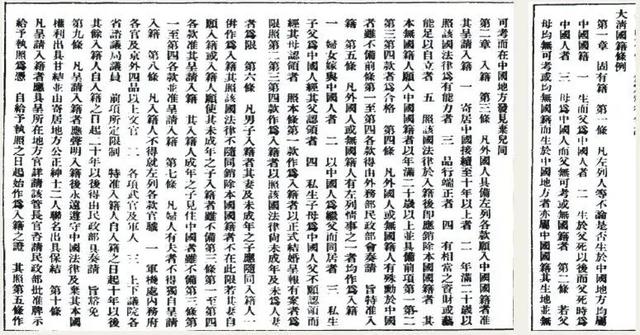 大清國籍條例
第一章 固有籍 第一條 凡左列人等不論是否生於中國地方均屬
中國國籍 一 生而父爲中國人者 二 生於父死以後而父死時爲
中國人者 三 母爲中國人而父無可考或無國籍者 第二條 若父
母均無可考或均無國籍而生於中國地方者亦屬中國國籍其生地並無
可考而在中國地方發見棄兒同
第二章 入籍 第三條 凡外國人具備左列各款願入中國國籍者准
其呈請入籍 一 寄居中國接續至十年以上者 二 年滿二十歲以上
照該國法律爲有能力者 三 品行端正者 四 有相當之資財或藝
能足以自立者 五 照該國法律於入籍後卽應銷除本國國籍者 其
本無國籍人願入中國國籍者以年滿二十歲以上並具備前項第一第二
第三第四款者爲合格 第四條 凡外國人或無國籍人有殊勳於中國
者雖不備前條第一至第四各款得由外務部民政部會奏請 旨特准入
籍 第五條 凡外國人或無國籍人有左列情事之一者均作爲入籍
一 婦女嫁與中國人者 二 以中國人爲繼父而同居者 三 私生
子父爲中國人經其父認領者 四 私生子母爲中國人父不願認領而
經其母認領者 照本條第一款作爲入籍者以正式結婚呈報有案者爲
限照第二第三第四款作爲入籍者以照該國法律尚未成年及未爲人妻
者爲限 第六條 凡男子入籍者其妻及未成年之子應隨同入籍人一
併作爲入籍其照該國法律不隨同銷除本國國籍者不在此限若其妻自
願入籍或入籍人願使其未成年之子入籍者雖不備第三條第一至第四
各款准其呈請入籍 其入籍人成年之子見住中國者雖不備第三條第
一至第四各款並准呈請入籍 第七條 凡婦人有夫者不得獨自呈請
入籍 第八條 凡入籍人不得就左列各款官職 一 軍機處內務府
各官及京外四品以上文官 二 各項武官及軍人 三 上下議院各
省諮議局議員 前項所定限制 特准入籍人自入籍之日起十年以後
其餘入籍人自入籍之日起二十年以後得由民政部具奏請 旨豁免
第九條 凡呈請入籍者應聲明入籍後永遠遵守中國法律及棄其本國
權利出具甘結並由寄居地方公正紳士二人聯名出具保結 第十條
凡呈請入籍者應具呈所在地方官詳請該管長官咨請民政部批准牌示
給予執照爲憑 自給予執照之日起始作爲入籍之證 其照第五條作